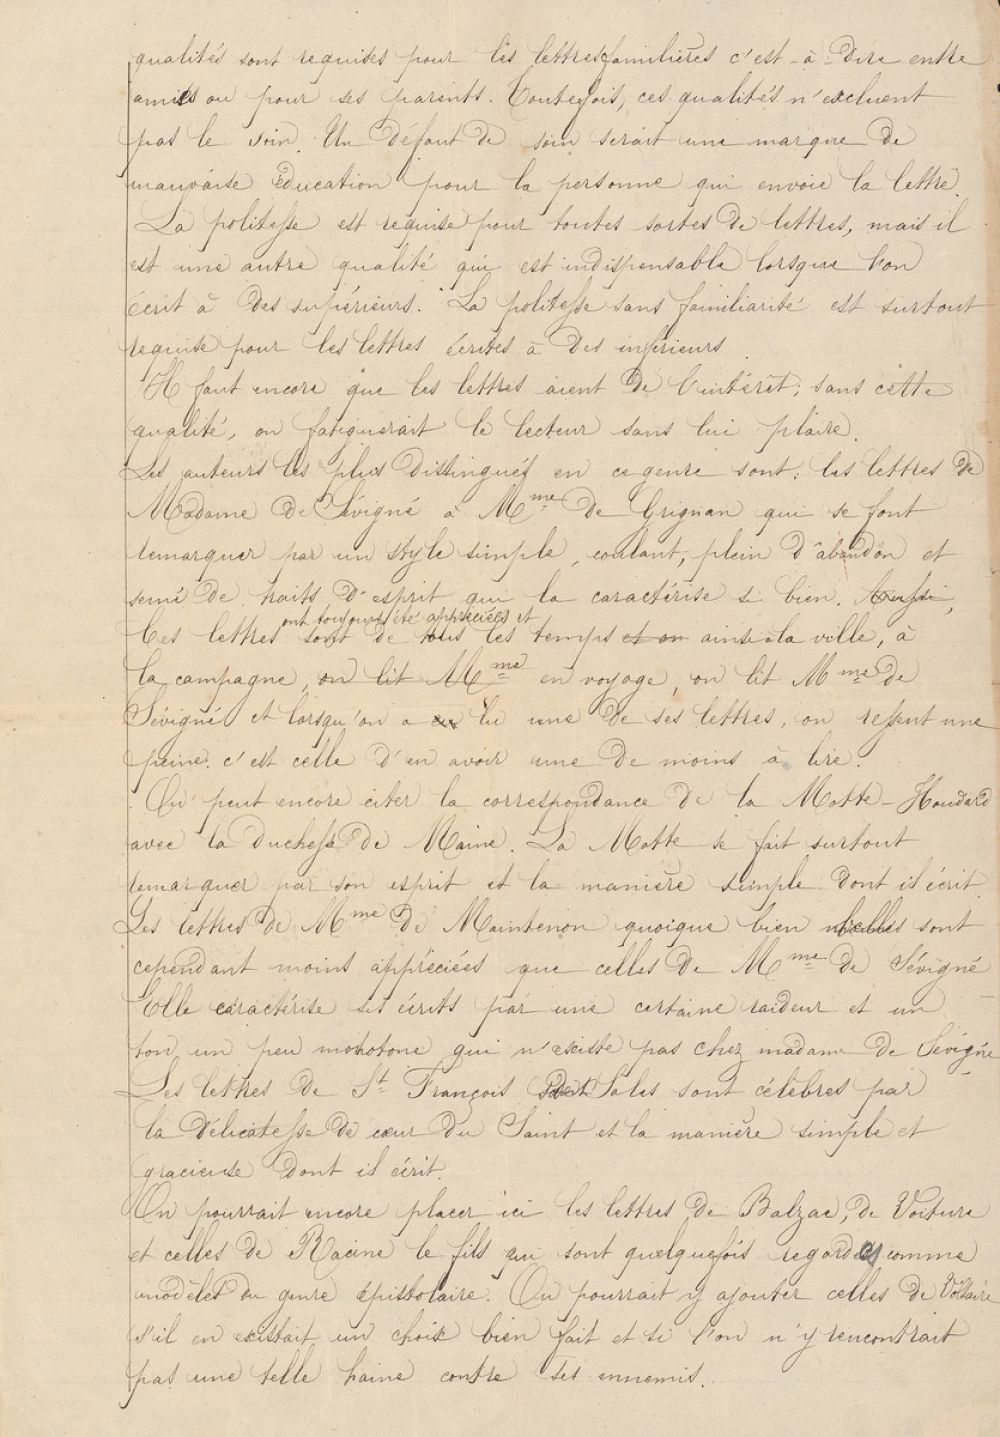 qualités sont requises pour les lettres familières c'est-à-dire entre
amies ou pour ses parents. Toutefois, ces qualités n'excluent
pas le soin. Un défaut de soin serait une marque de
mauvaise éducation pour la personne qui envoie la lettre.
La politesse est requise pour toutes sortes de lettres, mais il
est une autre qualité qui est indispensable lorsque l'on
écrit à des supérieurs. La politesse sans familiarité est surtout
requise pour les lettres écrites à des inférieurs
Il faut encore que les lettres aient de l'intérêt; sans cette
qualité, on fatiguerait le lecteur sans lui plaire.
Les auteurs les plus distingués en ce genre sont: les lettres de
Madame de Sévigné à Mme de Grignan qui se font
remarquer par un style simple, coulant, plein d'abandon et
semé de traits d'esprit qui la caractérise si bien. Aussi,
ont toujours été appréciées et
Ces lettres sont de tous les temps et on ainsi à la ville, à
la campagne, on lit Mme en voyage, on lit Mme de
Sévigné et lorsqu'on a lu une de ses lettres, on ressent une
peine: c'est celle d'en avoir une de moins à lire.
On peut encore citer la correspondance de la Motte-Houdard
avec la duchesse de Maine. La Motte se fait surtout
remarquer par son esprit et la manière simple dont il écrit
Les lettres de Mme de Maintenon quoique bien belles sont
cependant moins appréciées que celles de Mme de Sévigné
Elle caractérise ses écrits par une certaine raideur et un
ton un peu monotone qui n'existe pas chez madame de Sévigné
Les lettres de St François de Sales sont célèbres par
la délicatesse de cœur du Saint et la manière simple et
gracieuse dont il écrit.
On pourrait encore placer ici les lettres de Balzac, de Voiture
et celles de Racine le fils qui sont quelquefois regardées comme
modèles du genre épistolaire. On pourrait y ajouter celles de Voltaire
s'il en existait un choix bien fait et si l'on n'y rencontrait
pas une telle haine contre ses ennemis.